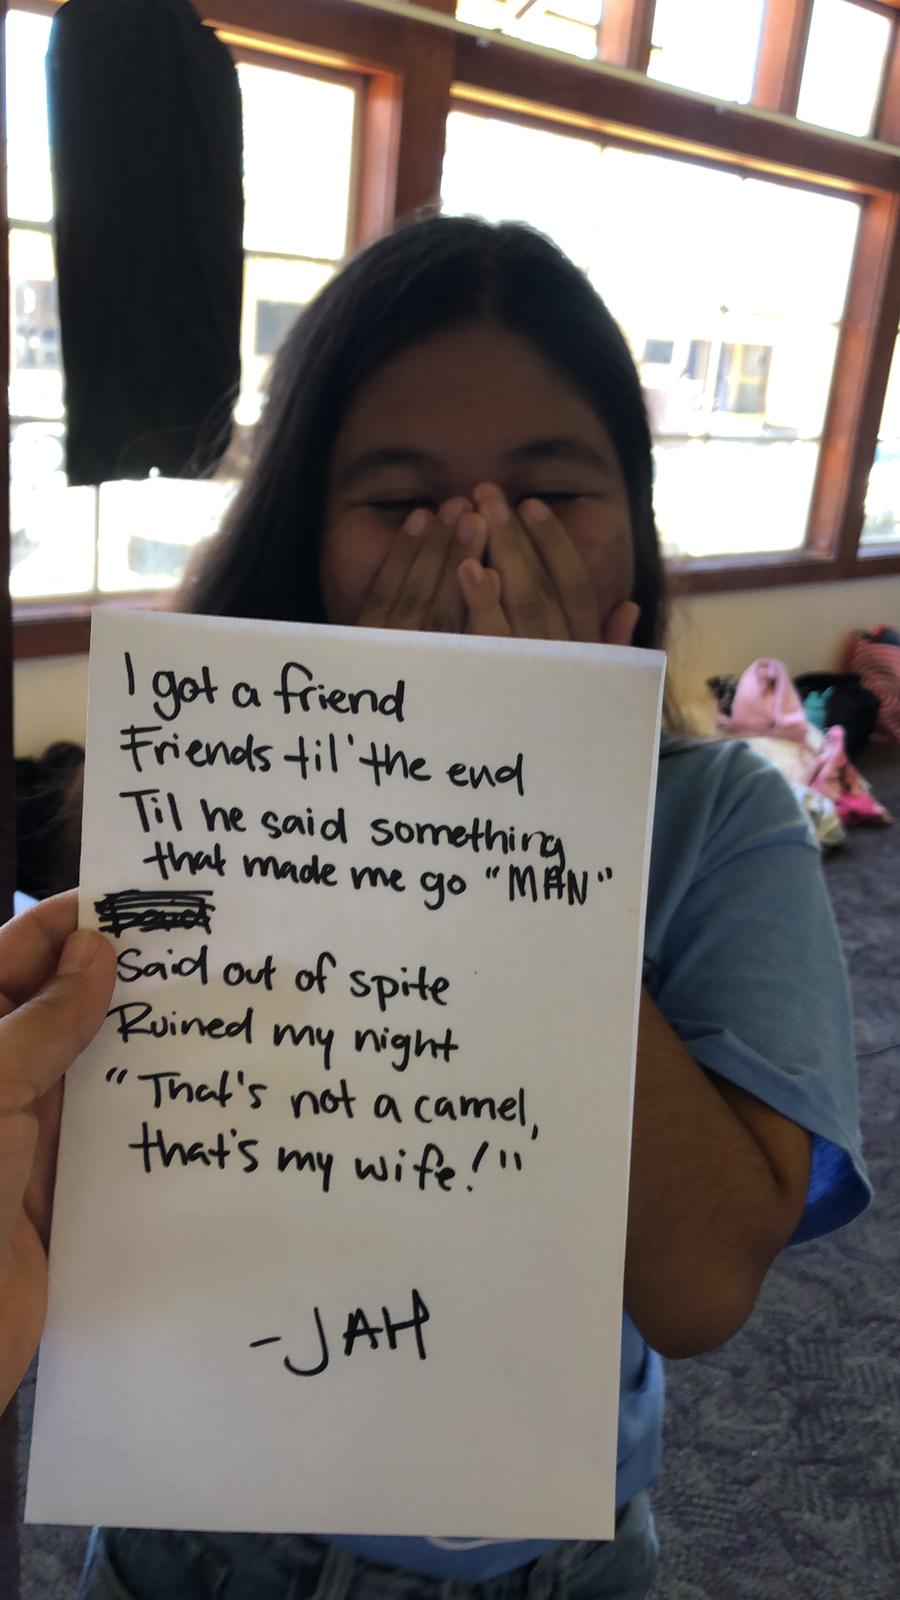 I got a friend
Friends til' the end
Til he said something
that made me go "MAN"
Said out of spite
Ruined my night
"That's not a camel,
that's my wife!"
-JAH